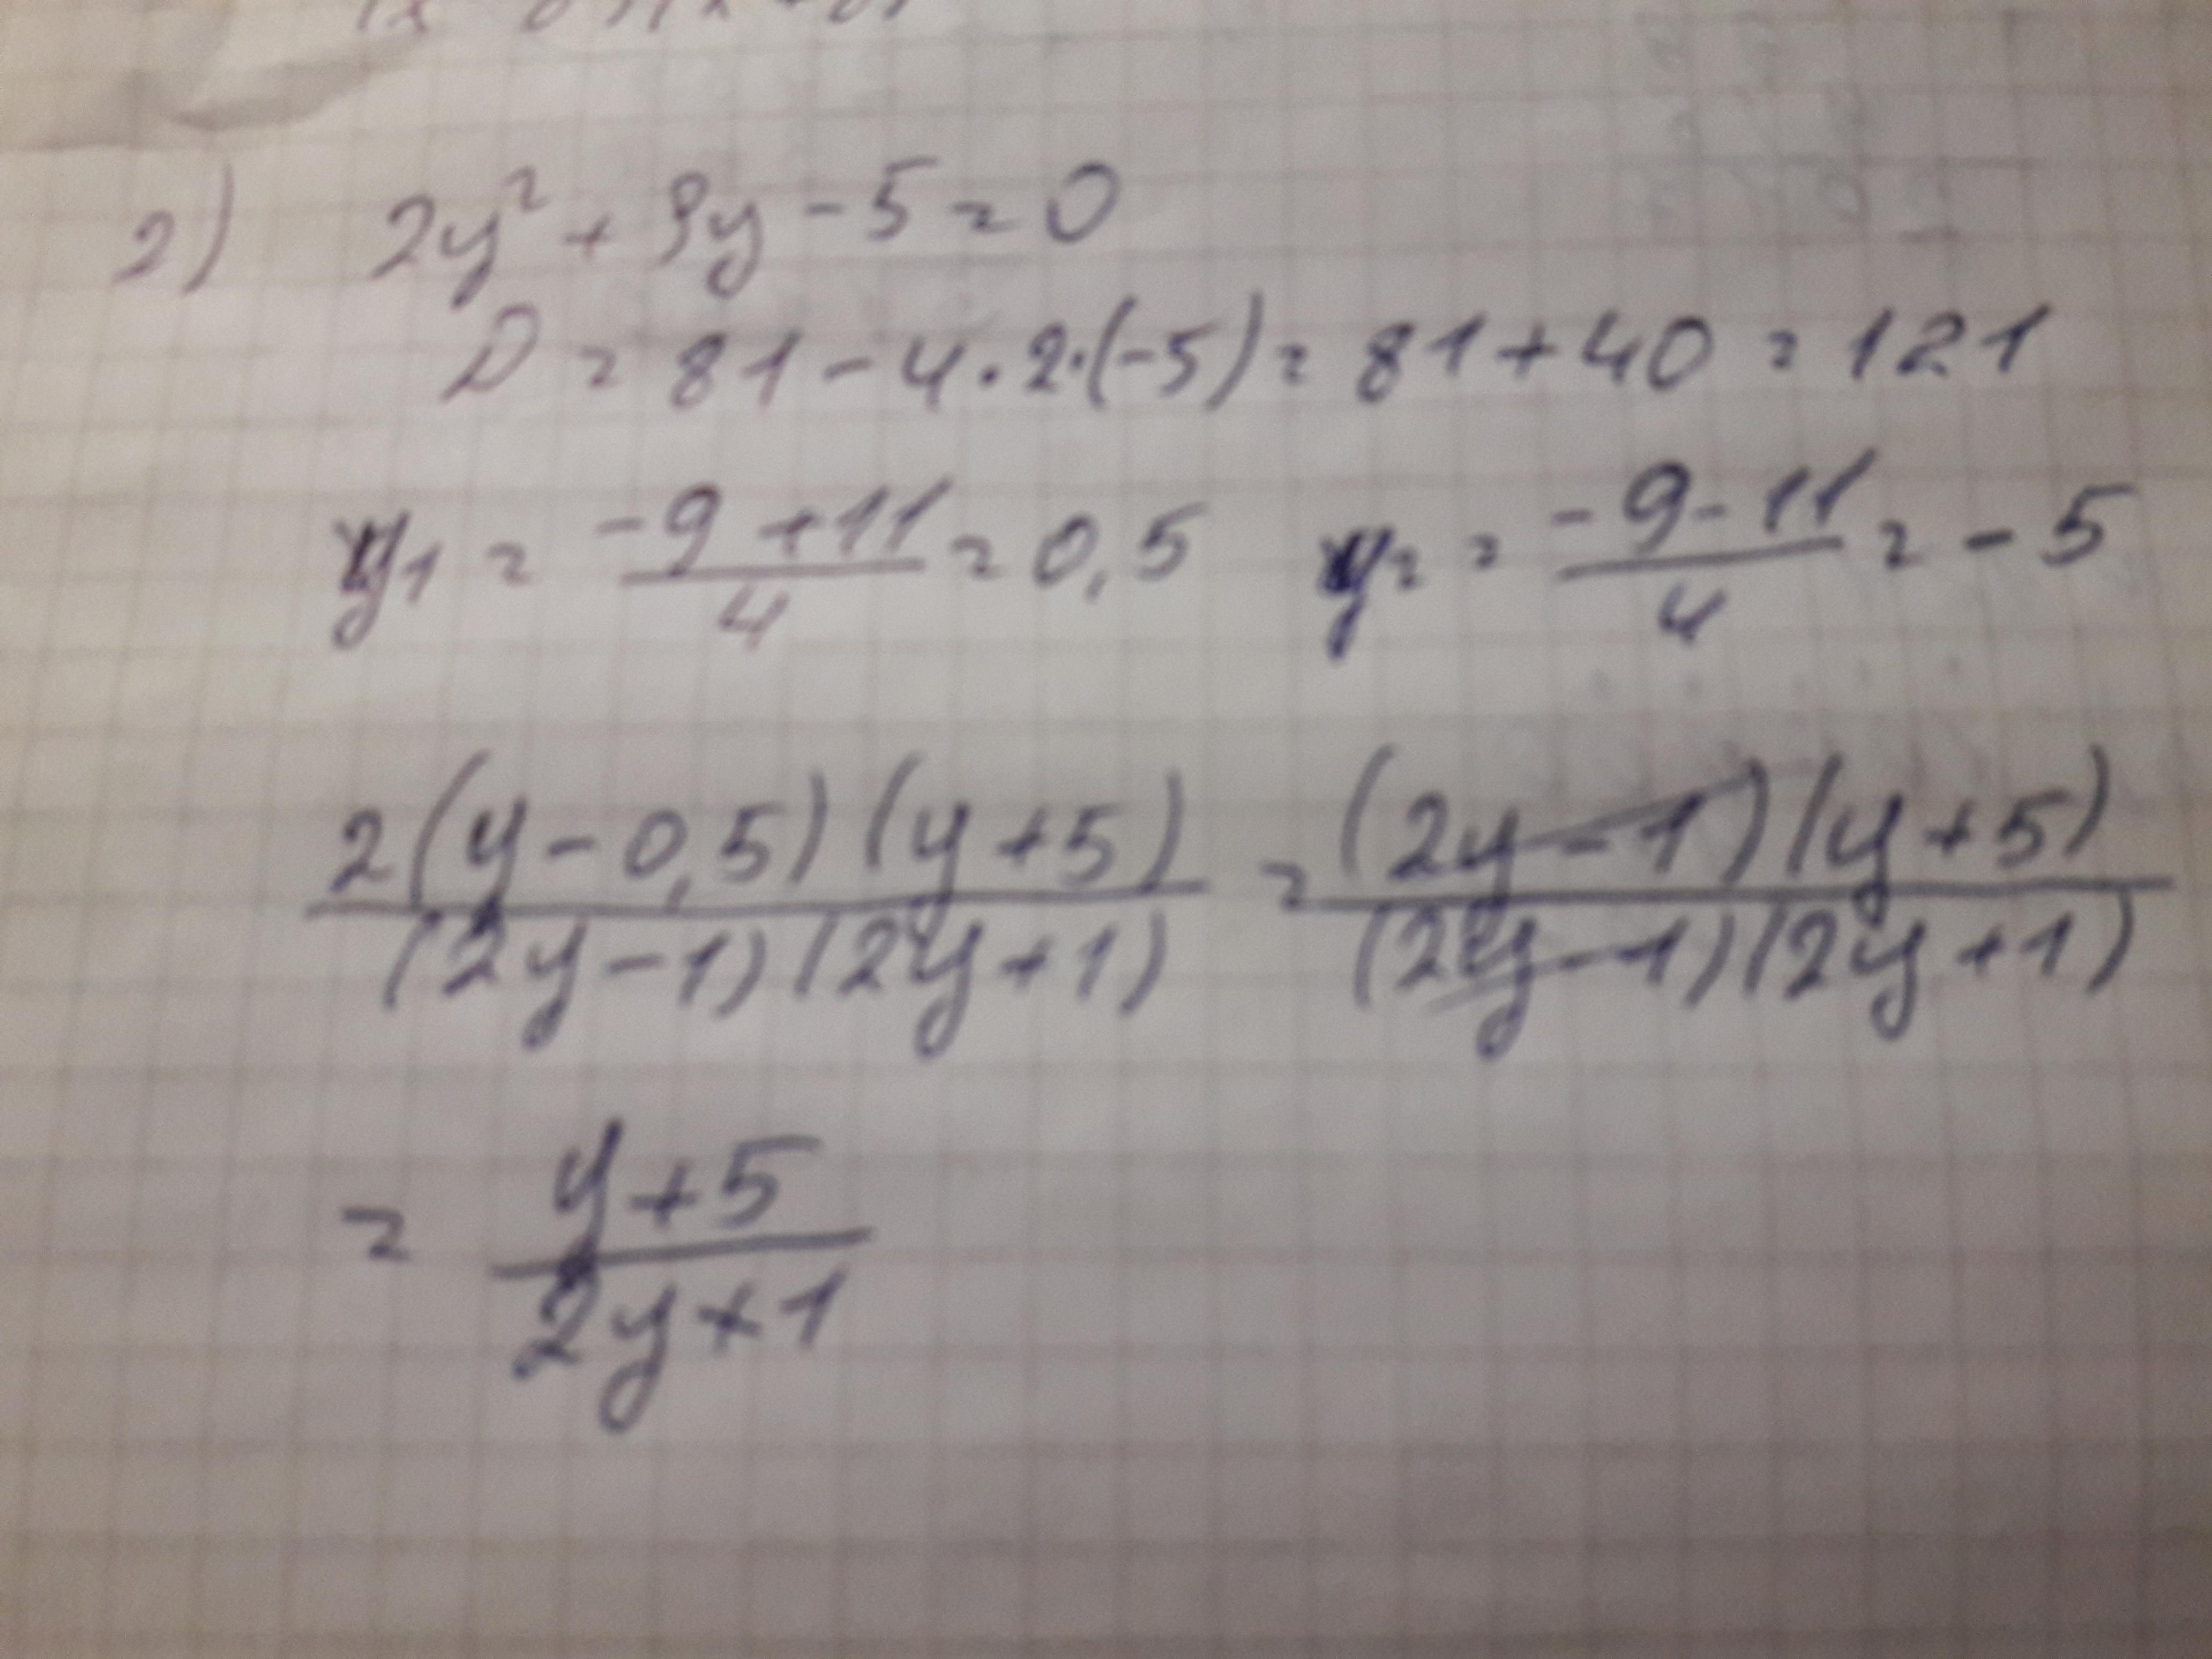 2) 2y² + 9y - 5 = 0
D = 81 - 4 · 2 · (-5) = 81 + 40 = 121
y₁ = (-9 + 11)/4 = 0,5 y₂ = (-9 - 11)/4 = -5
2(y - 0,5)(y + 5)/(2y - 1)(2y + 1) = (2y - 1)(y + 5)/(2y - 1)(2y + 1)
= y + 5/2y + 1